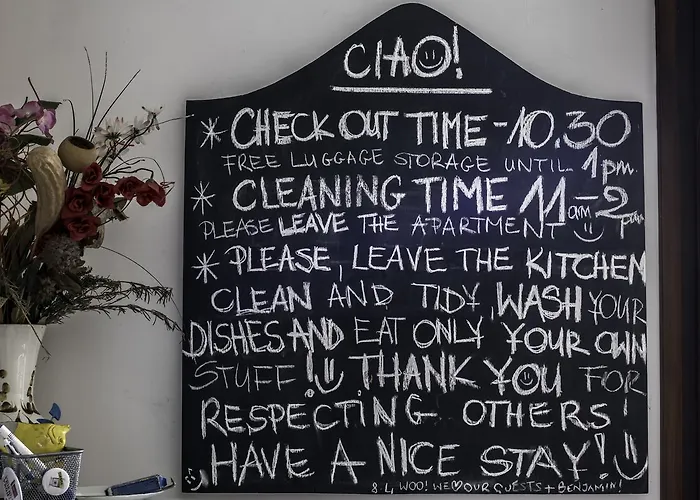 CIAO!
* CHECK OUT TIME - 10.30
FREE LUGGAGE STORAGE UNTIL 1pm.
* CLEANING TIME 11am-2pm
PLEASE LEAVE THE APARTMENT
* PLEASE, LEAVE THE KITCHEN
CLEAN AND TIDY, WASH YOUR
DISHES AND EAT ONLY YOUR OWN
STUFF! THANK YOU FOR
RESPECTING OTHERS!
HAVE A NICE STAY!
WOO! WE ♡ OUR GUESTS + BENJAMIN!